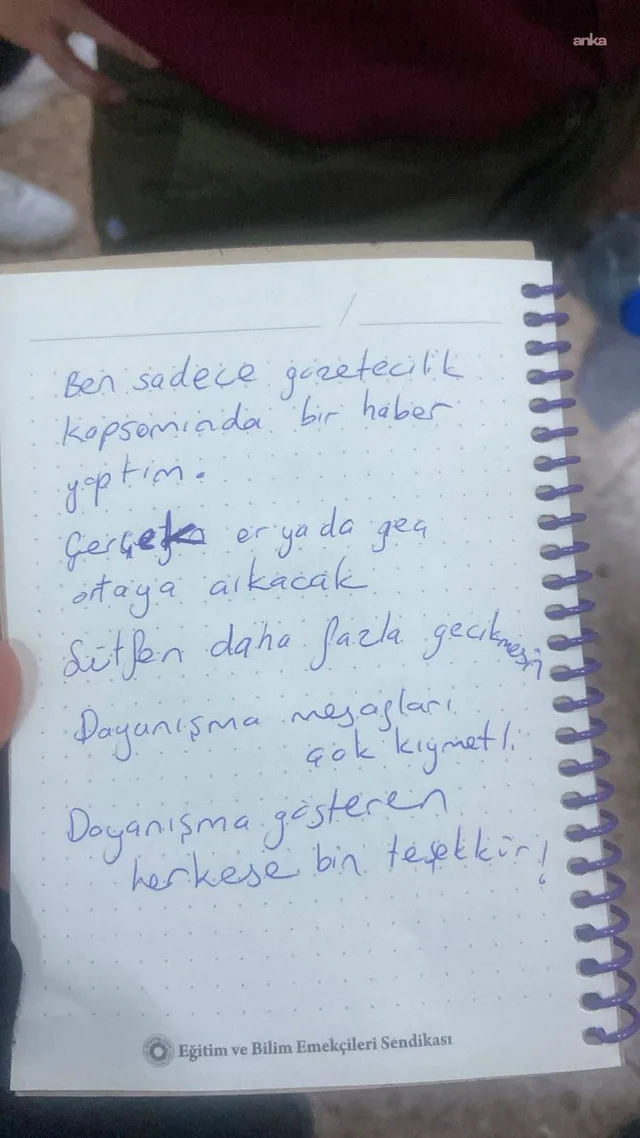 anka
/
Ben sadece gazetecilik
kapsamında bir haber
yaptım.
Gerçek er ya da geç
ortaya çıkacak
Lütfen daha fazla gecikmesin
Dayanışma mesajları
çok kıymetli
Dayanışma gösteren
herkese bin teşekkür!
Eğitim ve Bilim Emekçileri Sendikası